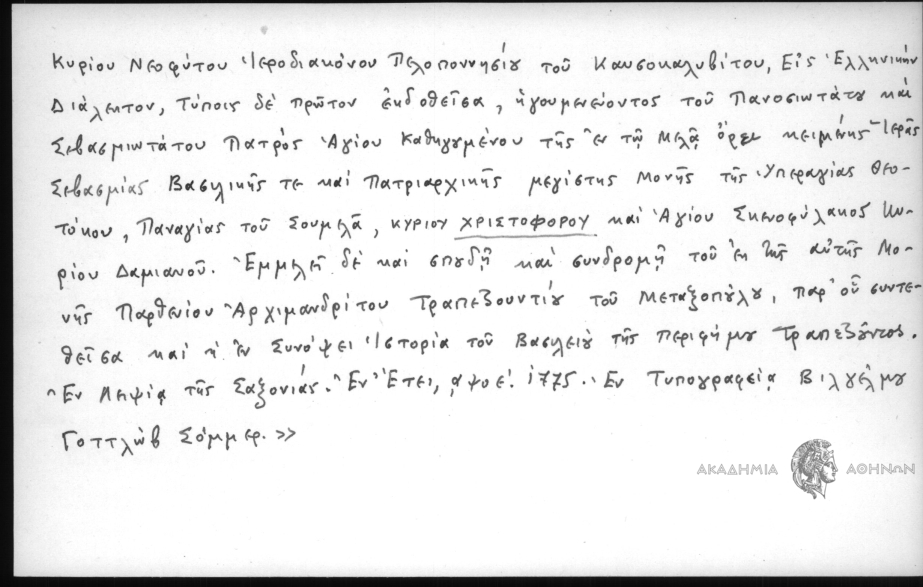 Κυρίου Νεοφύτου Ἱεροδιακόνου Πελοποννησίου τοῦ Καυσοκαλυβίτου, Εἰς Ἑλληνικὴν
Διάλεκτον, Τύποις δὲ πρῶτον ἐκδοθεῖσα, ἡγουμενεύοντος τοῦ Πανοσιωτάτου καὶ
Σεβασμιωτάτου Πατρὸς Ἁγίου Καθηγουμένου τῆς ἐν τῷ Μελᾷ ὄρει κειμένης Ἱερᾶς
Σεβασμίας Βασιλικῆς τε καὶ Πατριαρχικῆς μεγίστης Μονῆς τῆς Ὑπεραγίας Θεο-
τόκου, Παναγίας τοῦ Σουμελᾶ, κυρίου ΧΡΙΣΤΟΦΟΡΟΥ καὶ Ἁγίου Σκευοφύλακος Κυ-
ρίου Δαμιανοῦ. Ἐμμελεῖ δὲ καὶ σπουδῇ καὶ συνδρομῇ τοῦ ἐκ τῆς αὐτῆς Μο-
νῆς Παρθενίου Ἀρχιμανδρίτου Τραπεζουντίου τοῦ Μεταξοπούλου, παρ' οὗ συντε-
θεῖσα καὶ ἡ ἐν Συνόψει Ἱστορία τοῦ Βασιλείου τῆς περιφήμου Τραπεζοῦντος.
Ἐν Λειψίᾳ τῆς Σαξονίας. Ἐν Ἔτει, αψοε΄. 1775. Ἐν Τυπογραφείᾳ Βιλγέλμου
Γοττλὼβ Σόμμερ. >>
ΑΚΑΔΗΜΙΑ ΑΘΗΝΩΝ